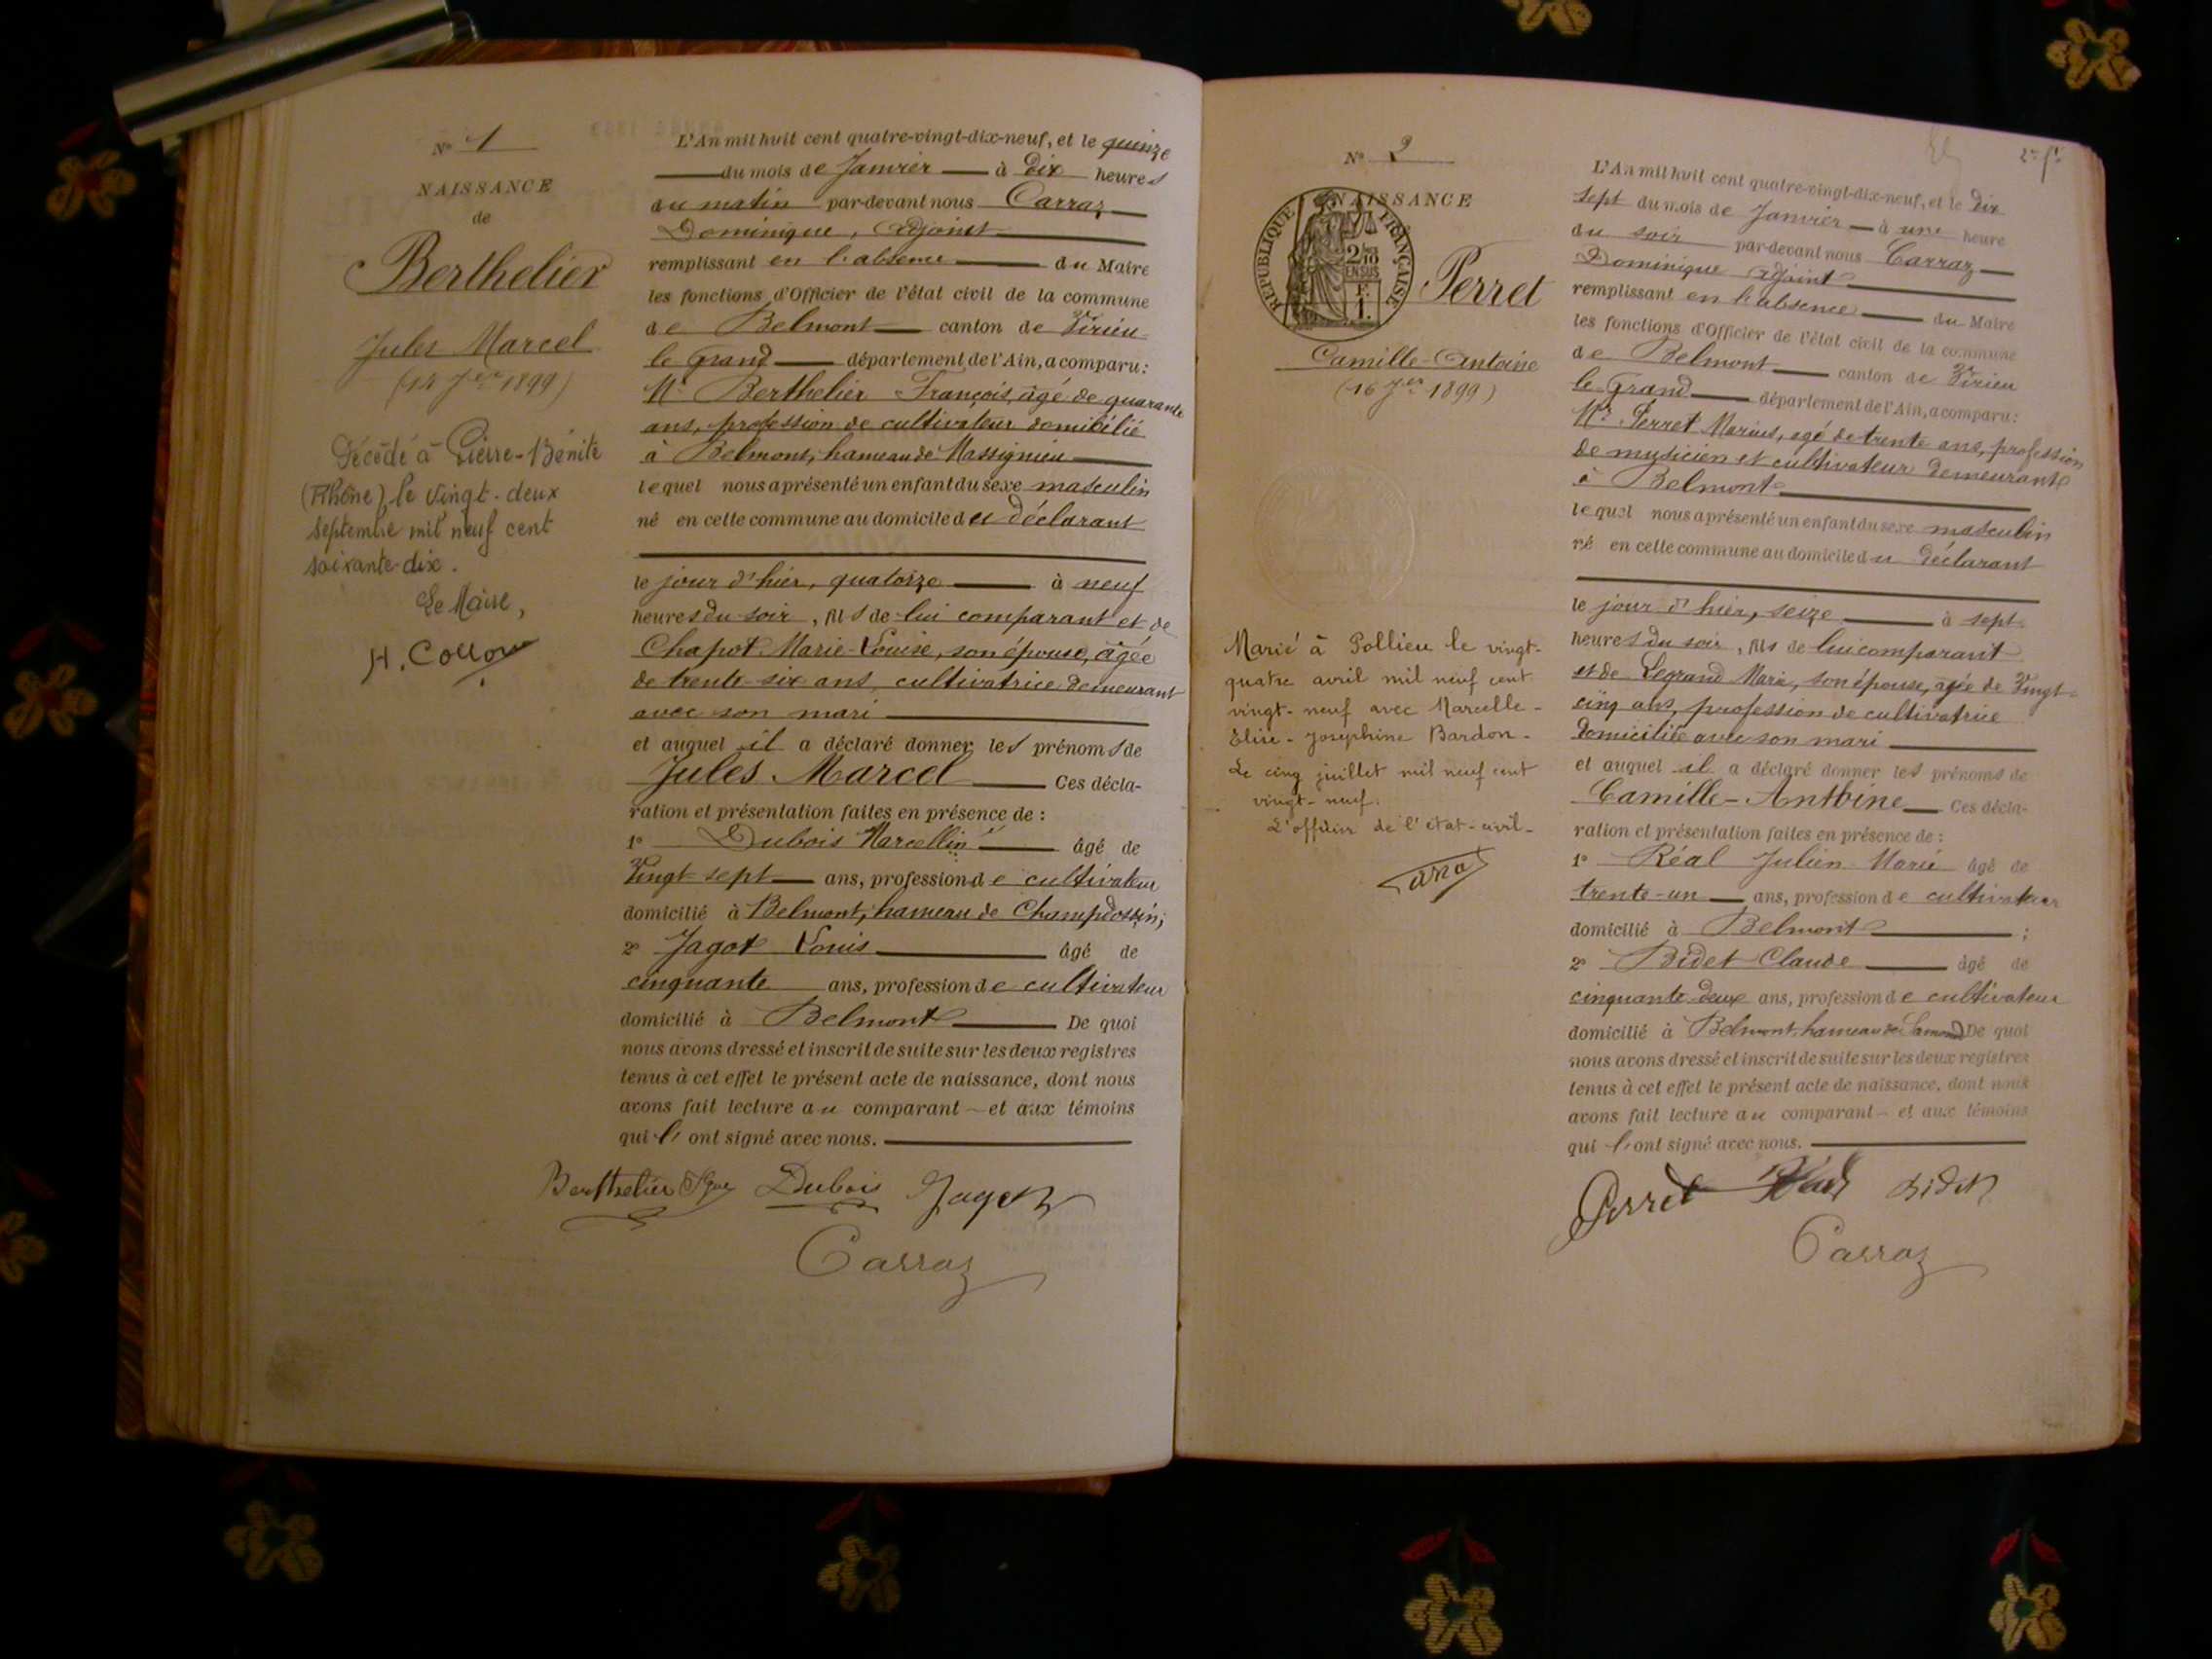 Nº 1
NAISSANCE
de
Berthelier
Jules Marcel
(14 Jer 1899)
Décédé à Pierre-Bénite
(Rhône), le vingt-deux
septembre mil neuf cent
soixante-dix.
Le Maire,
L'An mil huit cent quatre-vingt-dix-neuf, et le quinze
du mois de Janvier à Dix heures
du matin par-devant nous Carraz
Dominique, adjoint
remplissant en l'absence du Maire
les fonctions d'Officier de l'état civil de la commune
de Belmont canton de Virieu
le Grand département de l'Ain, a comparu:
Mr Berthelier François, âgé de quarante
ans, profession de cultivateur domicilié
à Belmont, hameau de Massignieu
lequel nous a présenté un enfant du sexe masculin
né en cette commune au domicile du déclarant
le jour d'hier, quatorze à neuf
heures du soir, fils de lui comparant et de
Chapot Marie-Louise, son épouse, âgée
de trente-six ans, cultivatrice demeurant
avec son mari
et auquel il a déclaré donner les prénoms de
Jules Marcel Ces décla-
ration et présentation faites en présence de:
1º Dubois Marcellin âgé de
Vingt-sept ans, profession de cultivateur
domicilié à Belmont, hameau de Champdossin;
2º Jagot Louis âgé de
cinquante ans, profession de cultivateur
domicilié à Belmont De quoi
nous avons dressé et inscrit de suite sur les deux registres
tenus à cet effet le présent acte de naissance, dont nous
avons fait lecture au comparant et aux témoins
qui l'ont signé avec nous.
Berthelier Dubois Jagot
Carraz
2e ft
Nº 2
NAISSANCE
REPUBLIQUE FRANÇAISE
2/10
EN SUS
F.
1.
Perret
Camille-Antoine
(16 Jer 1899)
Marié à Pollieu le vingt-
quatre avril mil neuf cent
vingt-neuf avec Marcelle-
Elise-Joséphine Bardon-
Le cinq juillet mil neuf cent
vingt-neuf.
L'officier de l'état-civil-
L'An mil huit cent quatre-vingt-dix-neuf, et le Dix
sept du mois de Janvier à une heure
du soir par-devant nous Carraz
Dominique adjoint
remplissant en l'absence du Maire
les fonctions d'Officier de l'état civil de la commune
de Belmont canton de Virieu
le Grand département de l'Ain, a comparu:
Mr Perret Marius, agé de trente ans, profession
de musicien et cultivateur demeurant
à Belmont
lequel nous a présenté un enfant du sexe masculin
né en cette commune au domicile du déclarant
le jour d'hier, seize à sept
heures du soir, fils de lui comparant
et de Legrand Marie, son épouse, agée de Vingt-
cinq ans, profession de cultivatrice
domiciliée avec son mari
et auquel il a déclaré donner les prénoms de
Camille-Antoine Ces décla-
ration et présentation faites en présence de:
1º Réal Julien-Marie âgé de
trente-un ans, profession de cultivateur
domicilié à Belmont ;
2º Bidet Claude âgé de
cinquante-deux ans, profession de cultivateur
domicilié à Belmont hameau de De quoi
nous avons dressé et inscrit de suite sur les deux registres
tenus à cet effet le présent acte de naissance, dont nous
avons fait lecture au comparant et aux témoins
qui l'ont signé avec nous.
Perret Réal Bidet
Carraz